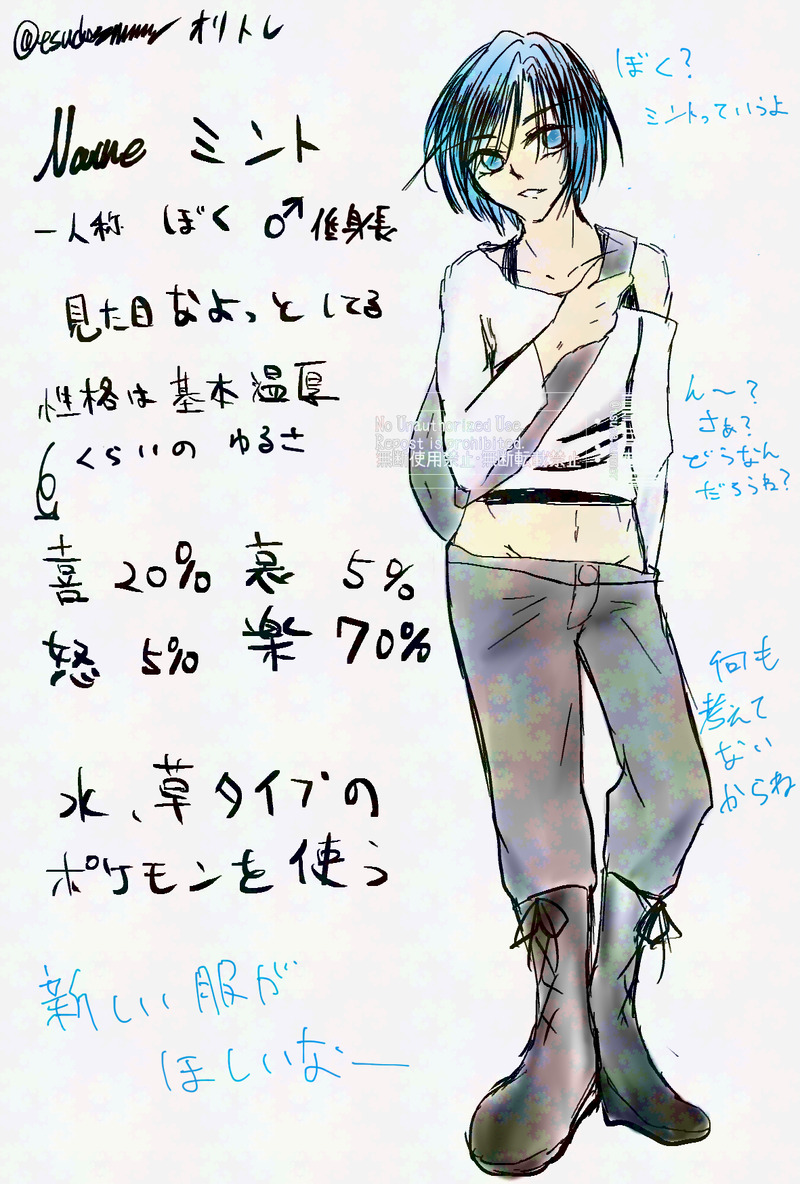 オリトレ
Name ミント
一人称 ぼく ♂ 低身長
見た目 なよっと してる
性格は 基本 温厚
くらいの ゆるさ
喜 20% 哀 5%
怒 5% 楽 70%
水、草タイプの
ポケモンを 使う
新しい 服が
ほしいなー
ぼく?
ミントっていうよ
No Unauthorized Use.
Repost is prohibited.
無断使用禁止・無断転載禁止
ん〜?
さぁ?
どうなん
だろうね?
何も
考えて
ない
からね